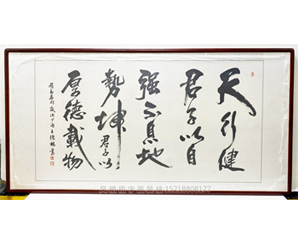 天行健
君子以自
强不息地
势坤君子以
厚德载物